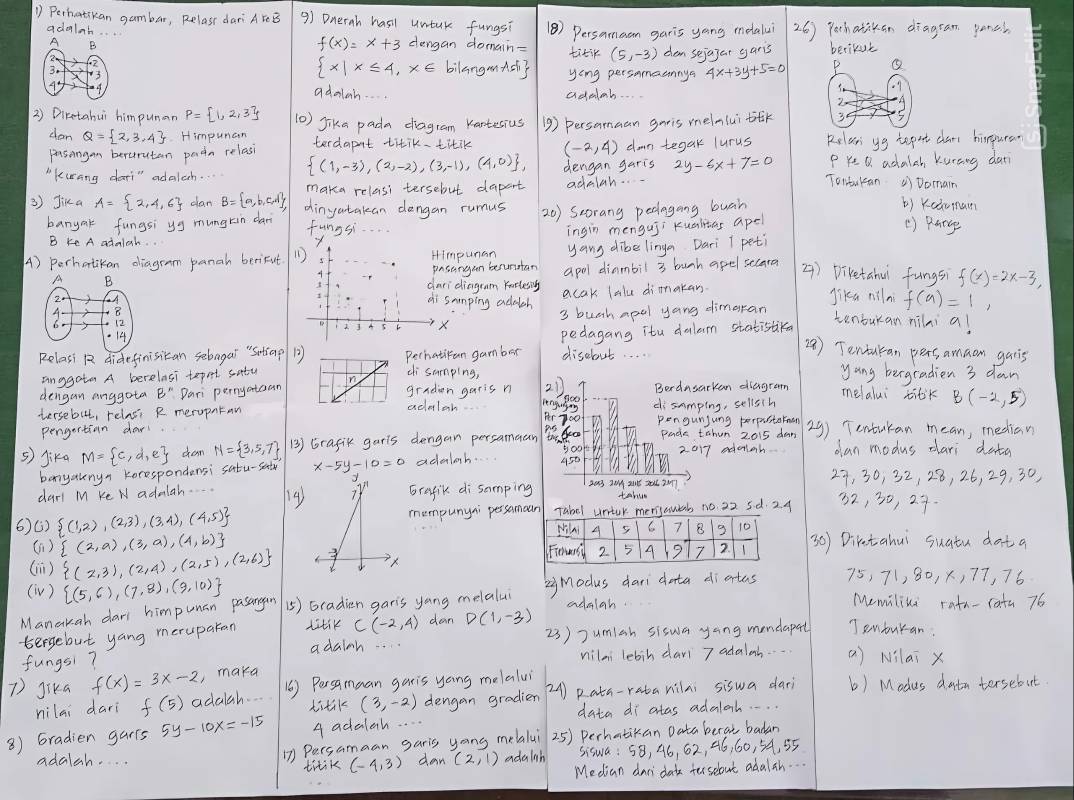 1) Perhatikan gambar, Relasi dari A ke B
adalah ....
A B
2 2
3 3
4 4
2) Diketahui himpunan P = {1, 2, 3}
dan Q = {2, 3, 4}. Himpunan
pasangan berurutan pada relasi
"Kurang dari" adalah ....
3) Jika A = {2, 4, 6} dan B = {a, b, c, d},
banyak fungsi yg mungkin dari
B ke A adalah ...
4) Perhatikan diagram panah berikut.
A B
2 4
4 8
6 12
14
Relasi R didefinisikan sebagai "Setiap
anggota A berelasi tepat satu
dengan anggota B". Dari pernyataan
tersebut, relasi R merupakan
pengertian dari ....
5) Jika M = {c, d, e} dan N = {3, 5, 7}
banyaknya korespondensi satu-satu
dari M ke N adalah ....
6) (i) {(1,2), (2,3), (3,4), (4,5)}
(ii) { (2,a), (3,a), (4,b)}
(iii) {(2,3), (2,4), (2,5), (2,6)}
(iv) {(5,6), (7,8), (9,10)}
Manakah dari himpunan pasangan
tersebut yang merupakan
fungsi ?
7) Jika f(x) = 3x - 2, maka
nilai dari f(5) adalah ....
8) Gradien garis 5y - 10x = -15
adalah ....
9) Daerah hasil untuk fungsi
f(x) = x + 3 dengan domain =
{x | x ≤ 4, x ∈ bilangan Asli}
adalah ....
10) Jika pada diagram Kartesius
terdapat titik-titik
{(1,-3), (2,-2), (3,-1), (4,0)},
maka relasi tersebut dapat
dinyatakan dengan rumus
fungsi ....
11) Himpunan
pasangan berurutan
dari diagram Kartesius
di samping adalah
y
5
4
3
2
1
0 1 2 3 4 5 6 x
12) Perhatikan gambar
di samping,
gradien garis n
adalah ....
n
13) Grafik garis dengan persamaan
x - 5y - 10 = 0 adalah ....
14) Grafik di samping
mempunyai persamaan
....
y
7
-3
x
15) Gradien garis yang melalui
titik C(-2,4) dan D(1,-3)
adalah ....
16) Persamaan garis yang melalui
titik (3,-2) dengan gradien
4 adalah ....
17) Persamaan garis yang melalui
titik (-4,3) dan (2,1) adalah
....
18) Persamaan garis yang melalui
titik (5,-3) dan sejajar garis
yang persamaannya 4x+3y+5=0
adalah ....
19) Persamaan garis melalui titik
(-2,4) dan tegak lurus
dengan garis 2y-6x+7=0
adalah ....
20) Seorang pedagang buah
ingin menguji kualitas apel
yang dibelinya. Dari 1 peti
apel diambil 3 buah apel secara
acak lalu dimakan.
3 buah apel yang dimakan
pedagang itu dalam statistika
disebut ....
21) Berdasarkan diagram
di samping, selisih
pengunjung perpustakaan
pada tahun 2015 dan
2017 adalah ...
Pengunjung
900
700
600
500
450
2013 2014 2015 2016 2017
tahun
Tabel untuk menjawab no. 22 s.d. 24
Nilai 4 5 6 7 8 9 10
Frekuensi 2 5 4 9 7 2 1
22) Modus dari data di atas
adalah ....
23) Jumlah siswa yang mendapat
nilai lebih dari 7 adalah ....
24) Rata-rata nilai siswa dari
data di atas adalah ....
25) Perhatikan Data berat badan
siswa : 58, 46, 62, 46, 60, 54, 55
Median dari data tersebut adalah ...
26) Perhatikan diagram panah
berikut
P Q
1 1
2 4
3 5
Relasi yg tepat dari himpunan
P ke Q adalah kurang dari
Tentukan a) Domain
b) Kodomain
c) Range
27) Diketahui fungsi f(x) = 2x - 3,
Jika nilai f(a) = 1,
tentukan nilai a!
28) Tentukan persamaan garis
yang bergradien 3 dan
melalui titik B(-2,5)
29) Tentukan mean, median
dan modus dari data
27, 30, 32, 28, 26, 29, 30,
32, 30, 27.
30) Diketahui suatu data
75, 71, 80, x, 77, 76.
Memiliki rata-rata 76
Tentukan :
a) Nilai x
b) Modus data tersebut.
SnapEdit